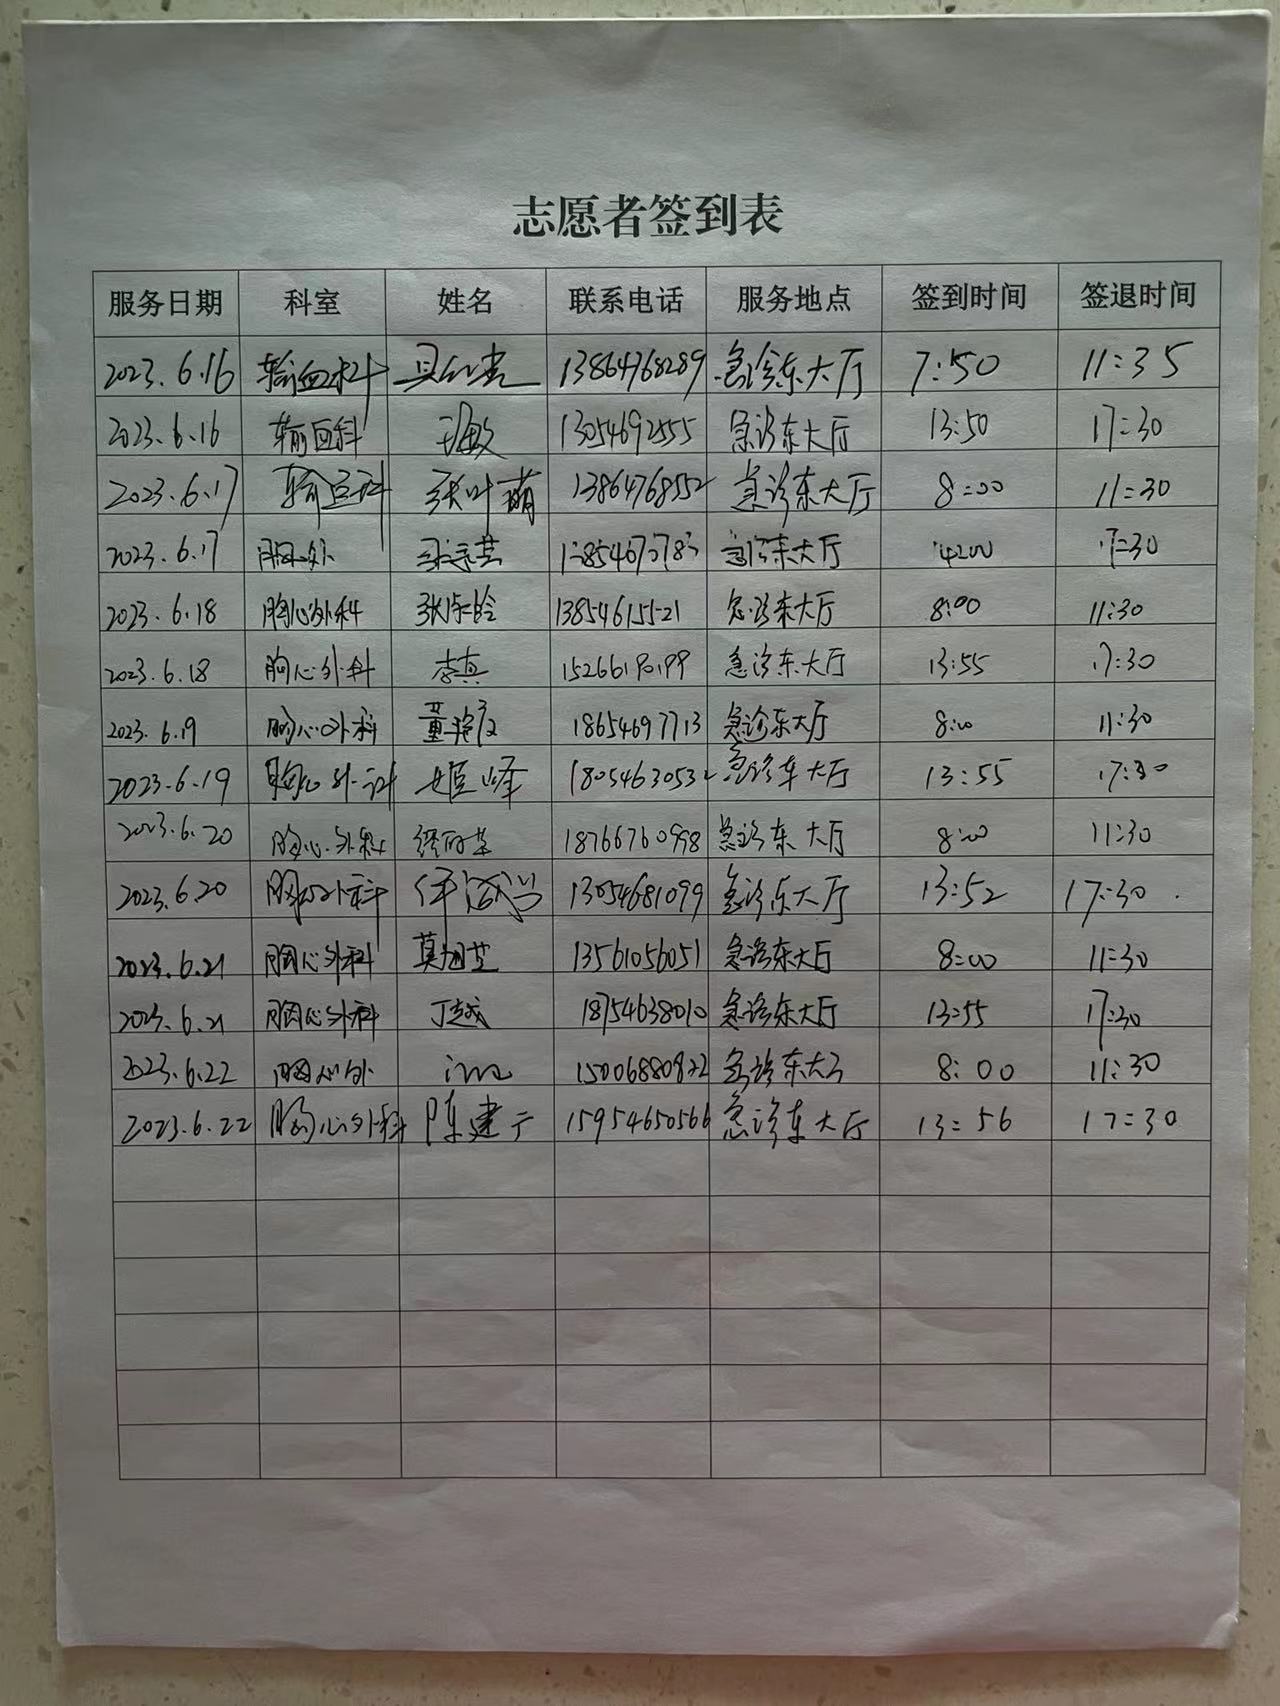 志愿者签到表
服务日期 科室 姓名 联系电话 服务地点 签到时间 签退时间
2023.6.16 输血科 13864768289 急诊东大厅 7:50 11:35
2023.6.16 输血科 王敏 13054692555 急诊东大厅 13:50 17:30
2023.6.17 输血科 张叶萌 13864768552 急诊东大厅 8:00 11:30
2023.6.17 胸心外 急诊东大厅 17:30
2023.6.18 胸心外科 13854615521 急诊东大厅 8:00 11:30
2023.6.18 胸心外科 李真 15266190199 急诊东大厅 13:55 17:30
2023.6.19 胸心外科 18654697713 急诊东大厅 8:00 11:30
2023.6.19 胸心外科 姬峰 18054630532 急诊东大厅 13:55 17:30
2023.6.20 胸心外科 18766760998 急诊东大厅 8:00 11:30
2023.6.20 胸心外科 13054681099 急诊东大厅 13:52 17:30
2023.6.21 胸心外科 13561056051 急诊东大厅 8:00 11:30
2023.6.21 胸心外科 丁越 18754638010 急诊东大厅 13:55 17:30
2023.6.22 胸心外 15006880822 急诊东大厅 8:00 11:30
2023.6.22 胸心外科 陈建宁 15954650566 急诊东大厅 13:56 17:30